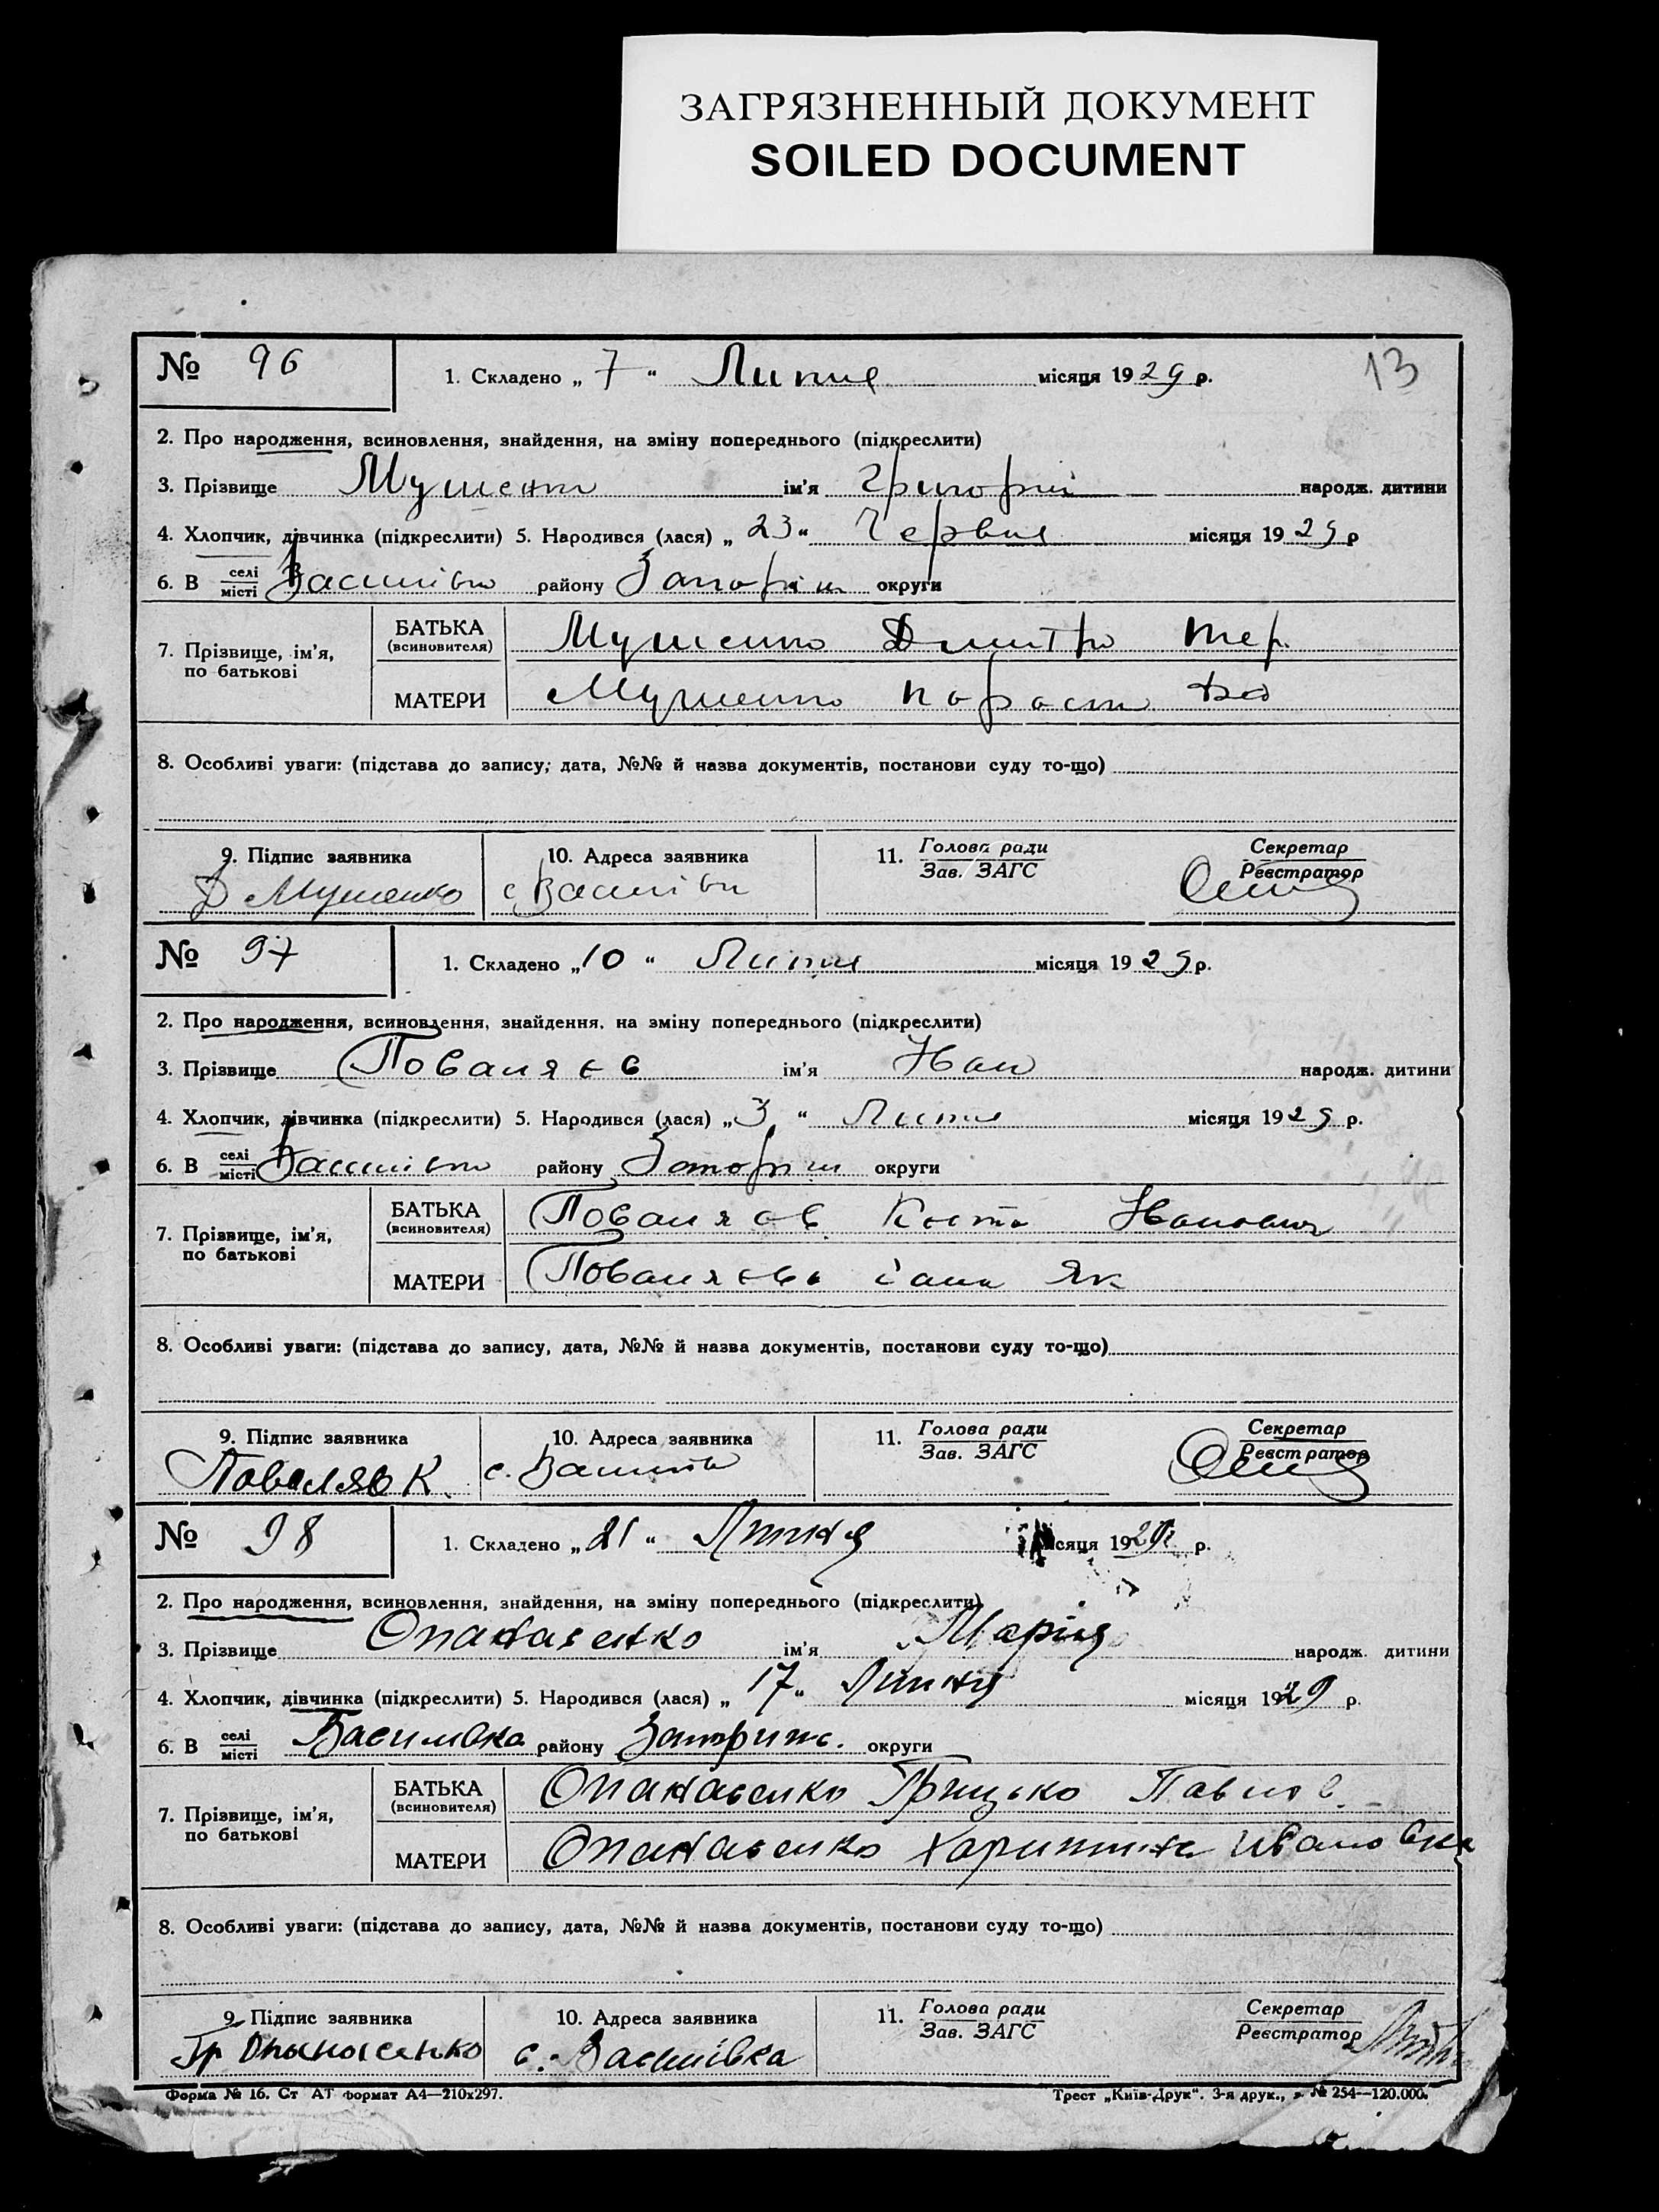 ЗАГРЯЗНЕННЫЙ ДОКУМЕНТ
SOILED DOCUMENT
13
№ 96
1. Складено „ 7 “ Липня місяця 1929 р.
2. Про народження, всиновлення, знайдення, на зміну попереднього (підкреслити)
3. Прізвище Мушенко ім'я Григорій народж. дитини
4. Хлопчик, дівчинка (підкреслити) 5. Народився (лася) „ 23 “ Червня місяця 1929 р
6. В селі місті Василівка району Запоріж округи
7. Прізвище, ім'я, по батькові
БАТЬКА (всиновителя) Мушенко Дмитро
МАТЕРИ Мушенко Параск
8. Особливі уваги: (підстава до запису; дата, №№ й назва документів, постанови суду то-що)
9. Підпис заявника
10. Адреса заявника
11. Голова ради Зав. ЗАГС
Секретар Реєстратор
Д Мушенко
с Василівка
№ 97
1. Складено „ 10 “ Липня місяця 1929 р.
2. Про народження, всиновлення, знайдення, на зміну попереднього (підкреслити)
3. Прізвище Поваляєв ім'я Иван народж. дитини
4. Хлопчик, дівчинка (підкреслити) 5. Народився (лася) „ 3 “ Липня місяця 1929 р.
6. В селі місті Василівка району Запоріж округи
7. Прізвище, ім'я, по батькові
БАТЬКА (всиновителя) Поваляєв Кость Иванович
МАТЕРИ Поваляєва Як
8. Особливі уваги: (підстава до запису, дата, №№ й назва документів, постанови суду то-що)
9. Підпис заявника
10. Адреса заявника
11. Голова ради Зав. ЗАГС
Секретар Реєстратор
К.
с. Василівка
№ 98
1. Складено „ 21 “ Липня місяця 1929 р.
2. Про народження, всиновлення, знайдення, на зміну попереднього (підкреслити)
3. Прізвище Опанасенко ім'я Марія народж. дитини
4. Хлопчик, дівчинка (підкреслити) 5. Народився (лася) „ 17 “ Липня місяця 1929 р.
6. В селі місті Василівка району Запориж. округи
7. Прізвище, ім'я, по батькові
БАТЬКА (всиновителя) Опанасенко Грицько Павлов.
МАТЕРИ Опанасенко Харитина Ивановна
8. Особливі уваги: (підстава до запису, дата, №№ й назва документів, постанови суду то-що)
9. Підпис заявника
10. Адреса заявника
11. Голова ради Зав. ЗАГС
Секретар Реєстратор
Гр Опанасенко
с. Василівка
Форма № 16. Ст АТ формат А4—210х297.
Трест „Київ-Друк“. 3-я друк., з. № 254—120.000.